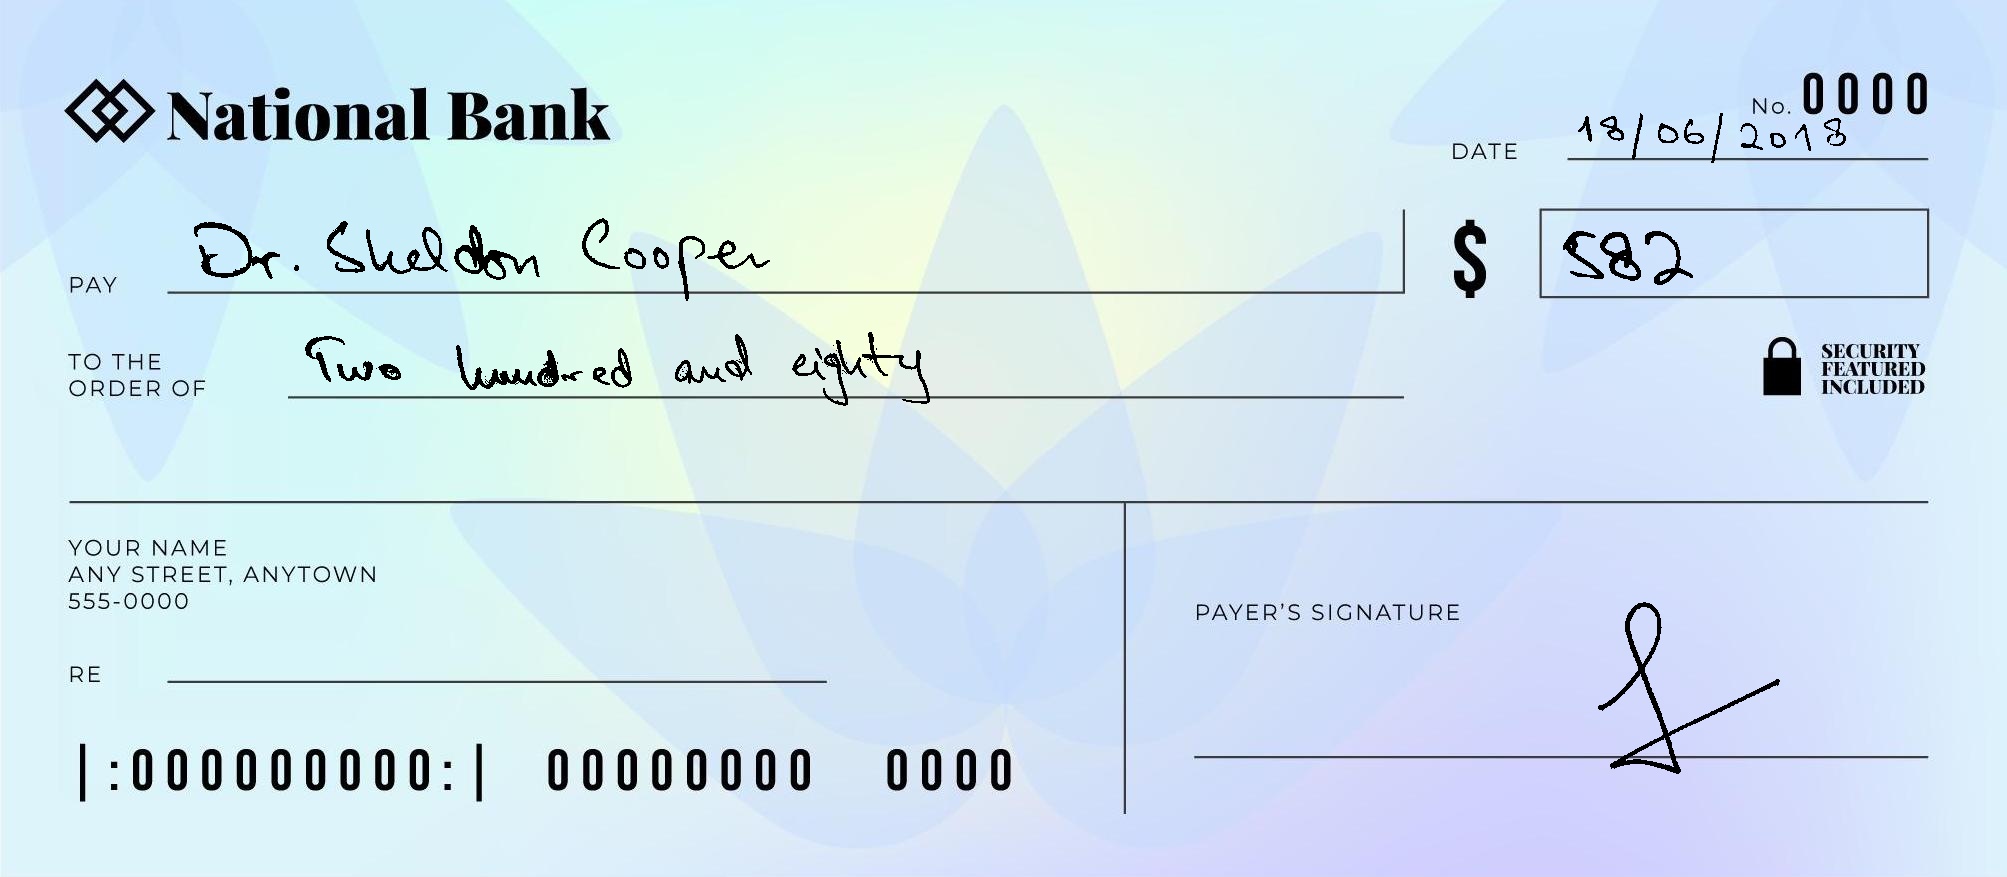 National Bank
No. 0000
DATE 18/06/2018
PAY Dr. Sheldon Cooper
$ 582
TO THE
ORDER OF Two hundred and eighty
SECURITY
FEATURED
INCLUDED
YOUR NAME
ANY STREET, ANYTOWN
555-0000
PAYER’S SIGNATURE
RE
|:000000000:| 00000000 0000